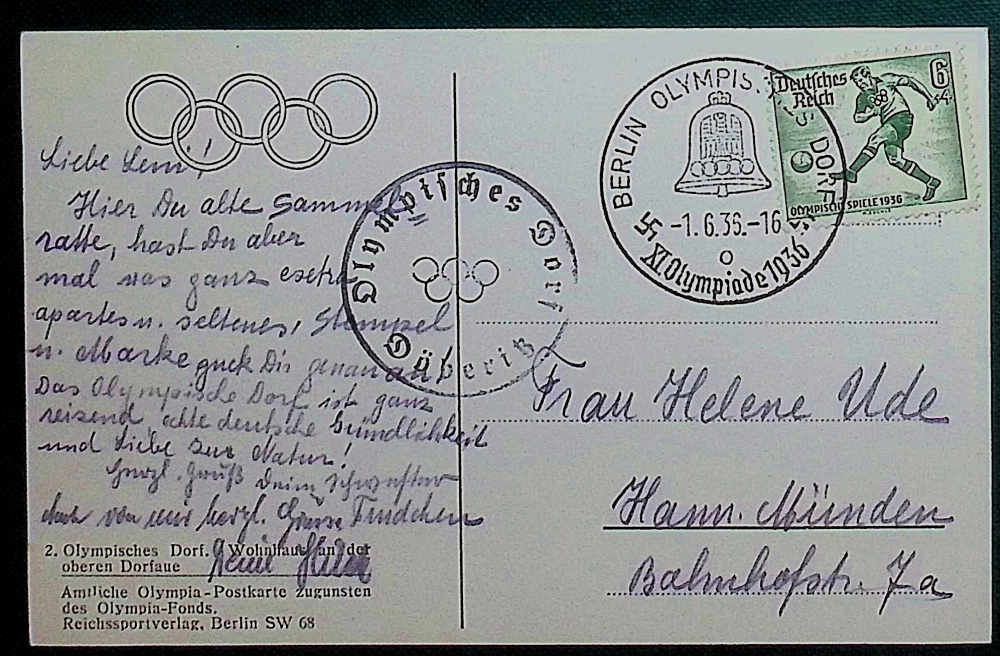 Liebe Leni!
Hier Du alte Sammel
ratte, hast Du aber
mal was ganz esetra
apartes u. seltenes, Stempel
u. Marke guck Dir genau an!
Das Olympische Dorf ist ganz
reizend, echte deutsche Gründlichkeit
und Liebe zur Natur!
Herzl. Gruß Deine Schwester
Auch von mir herzl. Grüsse
2. Olympisches Dorf. Wohnhaus an der
oberen Dorfaue
Amtliche Olympia-Postkarte zugunsten
des Olympia-Fonds.
Reichssportverlag, Berlin SW 68
Olympisches Dorf
Döberitz
BERLIN OLYMPISCHES DORF
-1.6.36.-16
XI Olympiade 1936
Deutsches
Reich
6
+4
OLYMPISCHE SPIELE 1936
Frau Helene Ude
Hann. Münden
Bahnhofstr. 7a